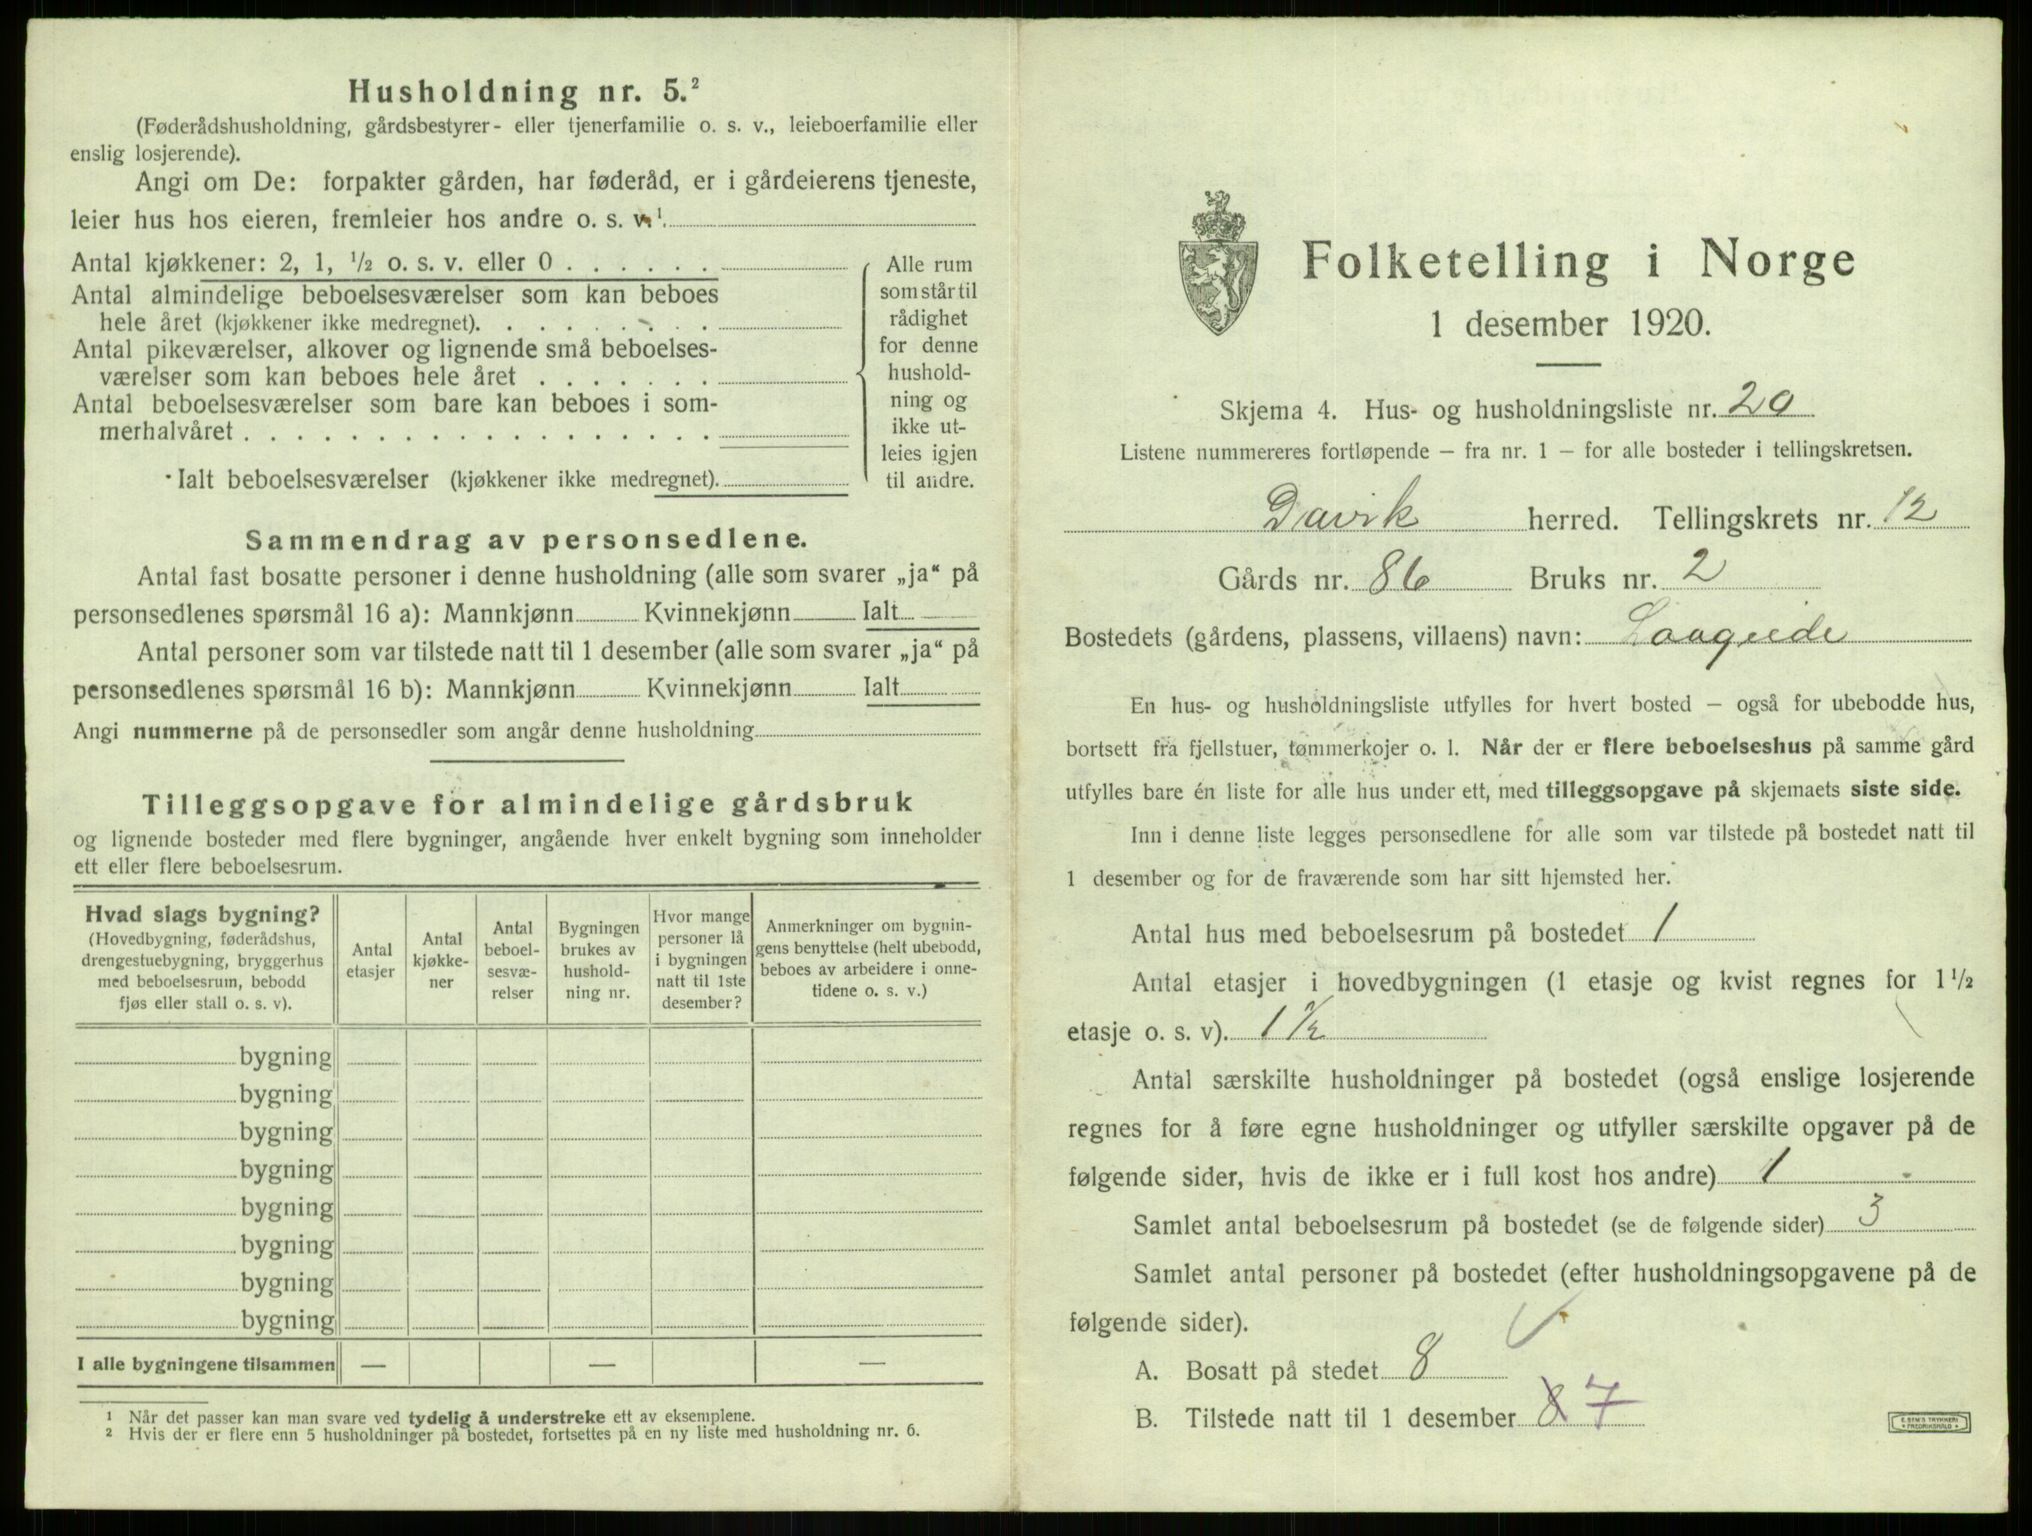 Husholdning nr. 5.²
(Føderådshusholdning, gårdsbestyrer- eller tjenerfamilie o. s. v., leieboerfamilie eller
enslig losjerende).
Angi om De: forpakter gården, har føderåd, er i gårdeierens tjeneste,
leier hus hos eieren, fremleier hos andre o. s. v.¹
Antal kjøkkener: 2, 1, ½ o. s. v. eller 0
Antal almindelige beboelsesværelser som kan beboes
hele året (kjøkkener ikke medregnet).
Antal pikeværelser, alkover og lignende små beboelses-
værelser som kan beboes hele året
Antal beboelsesværelser som bare kan beboes i som-
merhalvåret
Ialt beboelsesværelser (kjøkkener ikke medregnet).
Alle rum
som står til
rådighet
for denne
hushold-
ning og
ikke ut-
leies igjen
til andre.
Sammendrag av personsedlene.
Antal fast bosatte personer i denne husholdning (alle som svarer „ja“ på
personsedlenes spørsmål 16 a): Mannkjønn Kvinnekjønn Ialt
Antal personer som var tilstede natt til 1 desember (alle som svarer „ja“ på
personsedlenes spørsmål 16 b): Mannkjønn Kvinnekjønn Ialt
Angi nummerne på de personsedler som angår denne husholdning
Tilleggsopgave for almindelige gårdsbruk
og lignende bosteder med flere bygninger, angående hver enkelt bygning som inneholder
ett eller flere beboelsesrum.
Hvad slags bygning?
(Hovedbygning, føderådshus,
drengestuebygning, bryggerhus
med beboelsesrum, bebodd
fjøs eller stall o. s. v).
Antal
etasjer
Antal
kjøkke-
ner
Antal
beboel-
sesvæ-
relser
Bygningen
brukes av
hushold-
ning nr.
Hvor mange
personer lå
i bygningen
natt til 1ste
desember?
Anmerkninger om bygnin-
gens benyttelse (helt ubebodd,
beboes av arbeidere i onne-
tidene o. s. v.)
bygning
bygning
bygning
bygning
bygning
bygning
bygning
bygning
I alle bygningene tilsammen — — —
¹ Når det passer kan man svare ved tydelig å understreke ett av eksemplene.
² Hvis der er flere enn 5 husholdninger på bostedet, fortsettes på en ny liste med husholdning nr. 6.
Folketelling i Norge
1 desember 1920.
Skjema 4. Hus- og husholdningsliste nr. 20
Listene nummereres fortløpende — fra nr. 1 — for alle bosteder i tellingskretsen.
Davik herred. Tellingskrets nr. 12
Gårds nr. 86 Bruks nr. 2
Bostedets (gårdens, plassens, villaens) navn: Laageide
En hus- og husholdningsliste utfylles for hvert bosted — også for ubebodde hus,
bortsett fra fjellstuer, tømmerkojer o. l. Når der er flere beboelseshus på samme gård
utfylles bare én liste for alle hus under ett, med tilleggsopgave på skjemaets siste side.
Inn i denne liste legges personsedlene for alle som var tilstede på bostedet natt til
1 desember og for de fraværende som har sitt hjemsted her.
Antal hus med beboelsesrum på bostedet 1
Antal etasjer i hovedbygningen (1 etasje og kvist regnes for 1½
etasje o. s. v). 1½
Antal særskilte husholdninger på bostedet (også enslige losjerende
regnes for å føre egne husholdninger og utfyller særskilte opgaver på de
følgende sider, hvis de ikke er i full kost hos andre) 1
Samlet antal beboelsesrum på bostedet (se de følgende sider) 3
Samlet antal personer på bostedet (efter husholdningsopgavene på de
følgende sider).
A. Bosatt på stedet 8
B. Tilstede natt til 1 desember 8 7
E. SEM'S TRYKKERI
FREDRIKSHALD